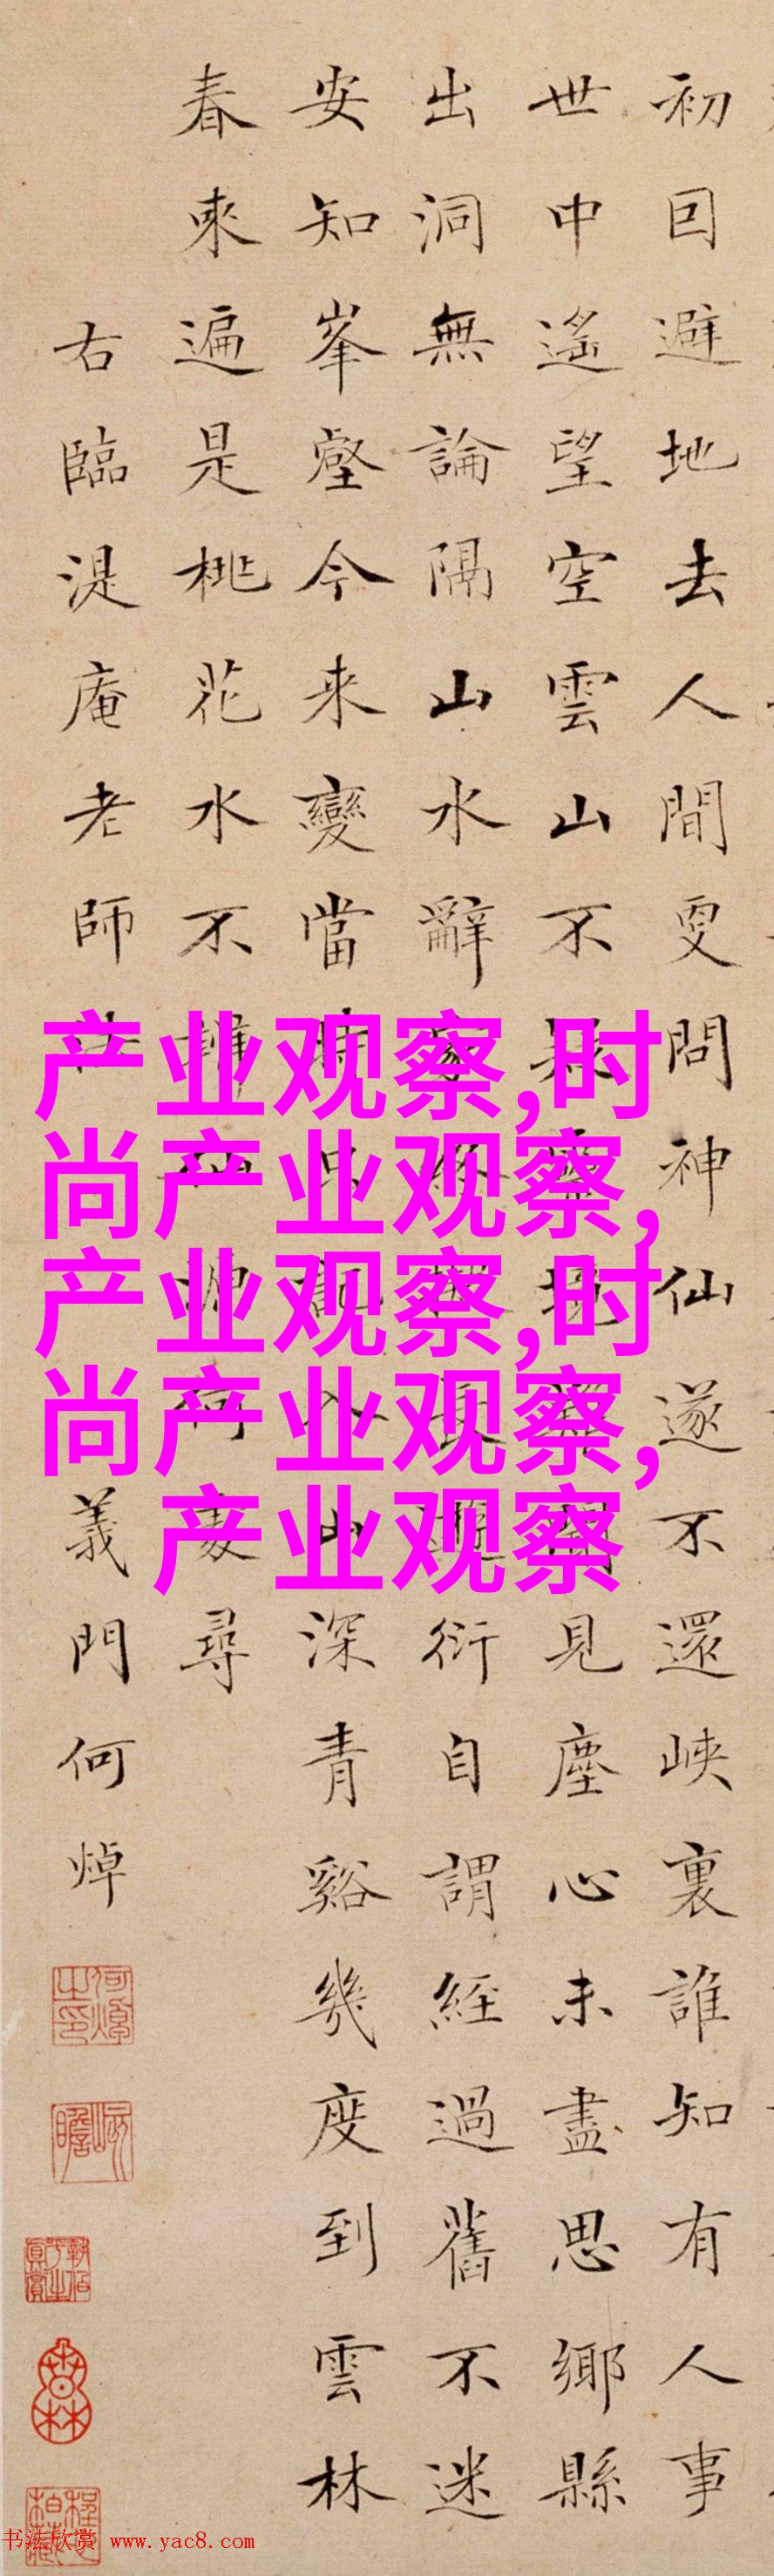 初囙避地去人間更問神仙遂不還峽裏誰知有人事
世中遙望空雲山不疑靈境難聞見塵心未盡思鄉縣
出洞無論隔山水辭家終擬長遊衍自謂經過舊不迷
安知峯壑今來變當時只記入山深青谿幾度到雲林
春來遍是桃花水不辨仙源何處尋
右臨湜庵老師法 義門何焯
何焯之印
屺瞻
产业观察,时
尚产业观察,
产业观察,时
尚产业观察,
产业观察
书法欣赏 www.yac8.com